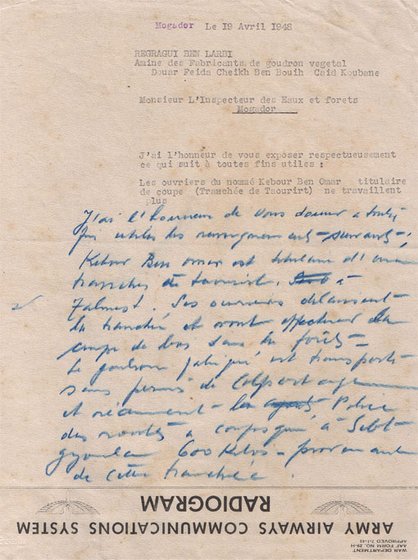 Mogador Le 19 Avril 1948
REGRAGUI BEN LARBI
Amine des Fabricants de goudron vegetal
Douar Feida Cheikh Ben Bouih Caid Koubane
Monsieur L'Inspecteur des Eaux et forets
Mogador
J'ai l'honneur de vous exposer respectueusement
ce qui suit à toutes fins utiles :
Les ouvriers du nommé Kebour Ben Omar titulaire
de coupe (Tranchée de Taourirt) ne travaillent
plus
J'ai l'honneur de vous donner a toutes
fin utiles les renseignements suivants :
Kebour Ben omar est titulaire d'une
tranchée de taourirt. à
Ses ouvriers délaissent
la tranchée et vont effectuer
coupe de bois dans les forêts
Le goudron fabriqué est transporté
sans permis de colportage
et récemment les Police
des routes a à Sebt
600 Kilos provenant
de cette tranchée.
RADIOGRAM
ARMY AIRWAYS COMMUNICATIONS SYSTEM
WAR DEPARTMENT